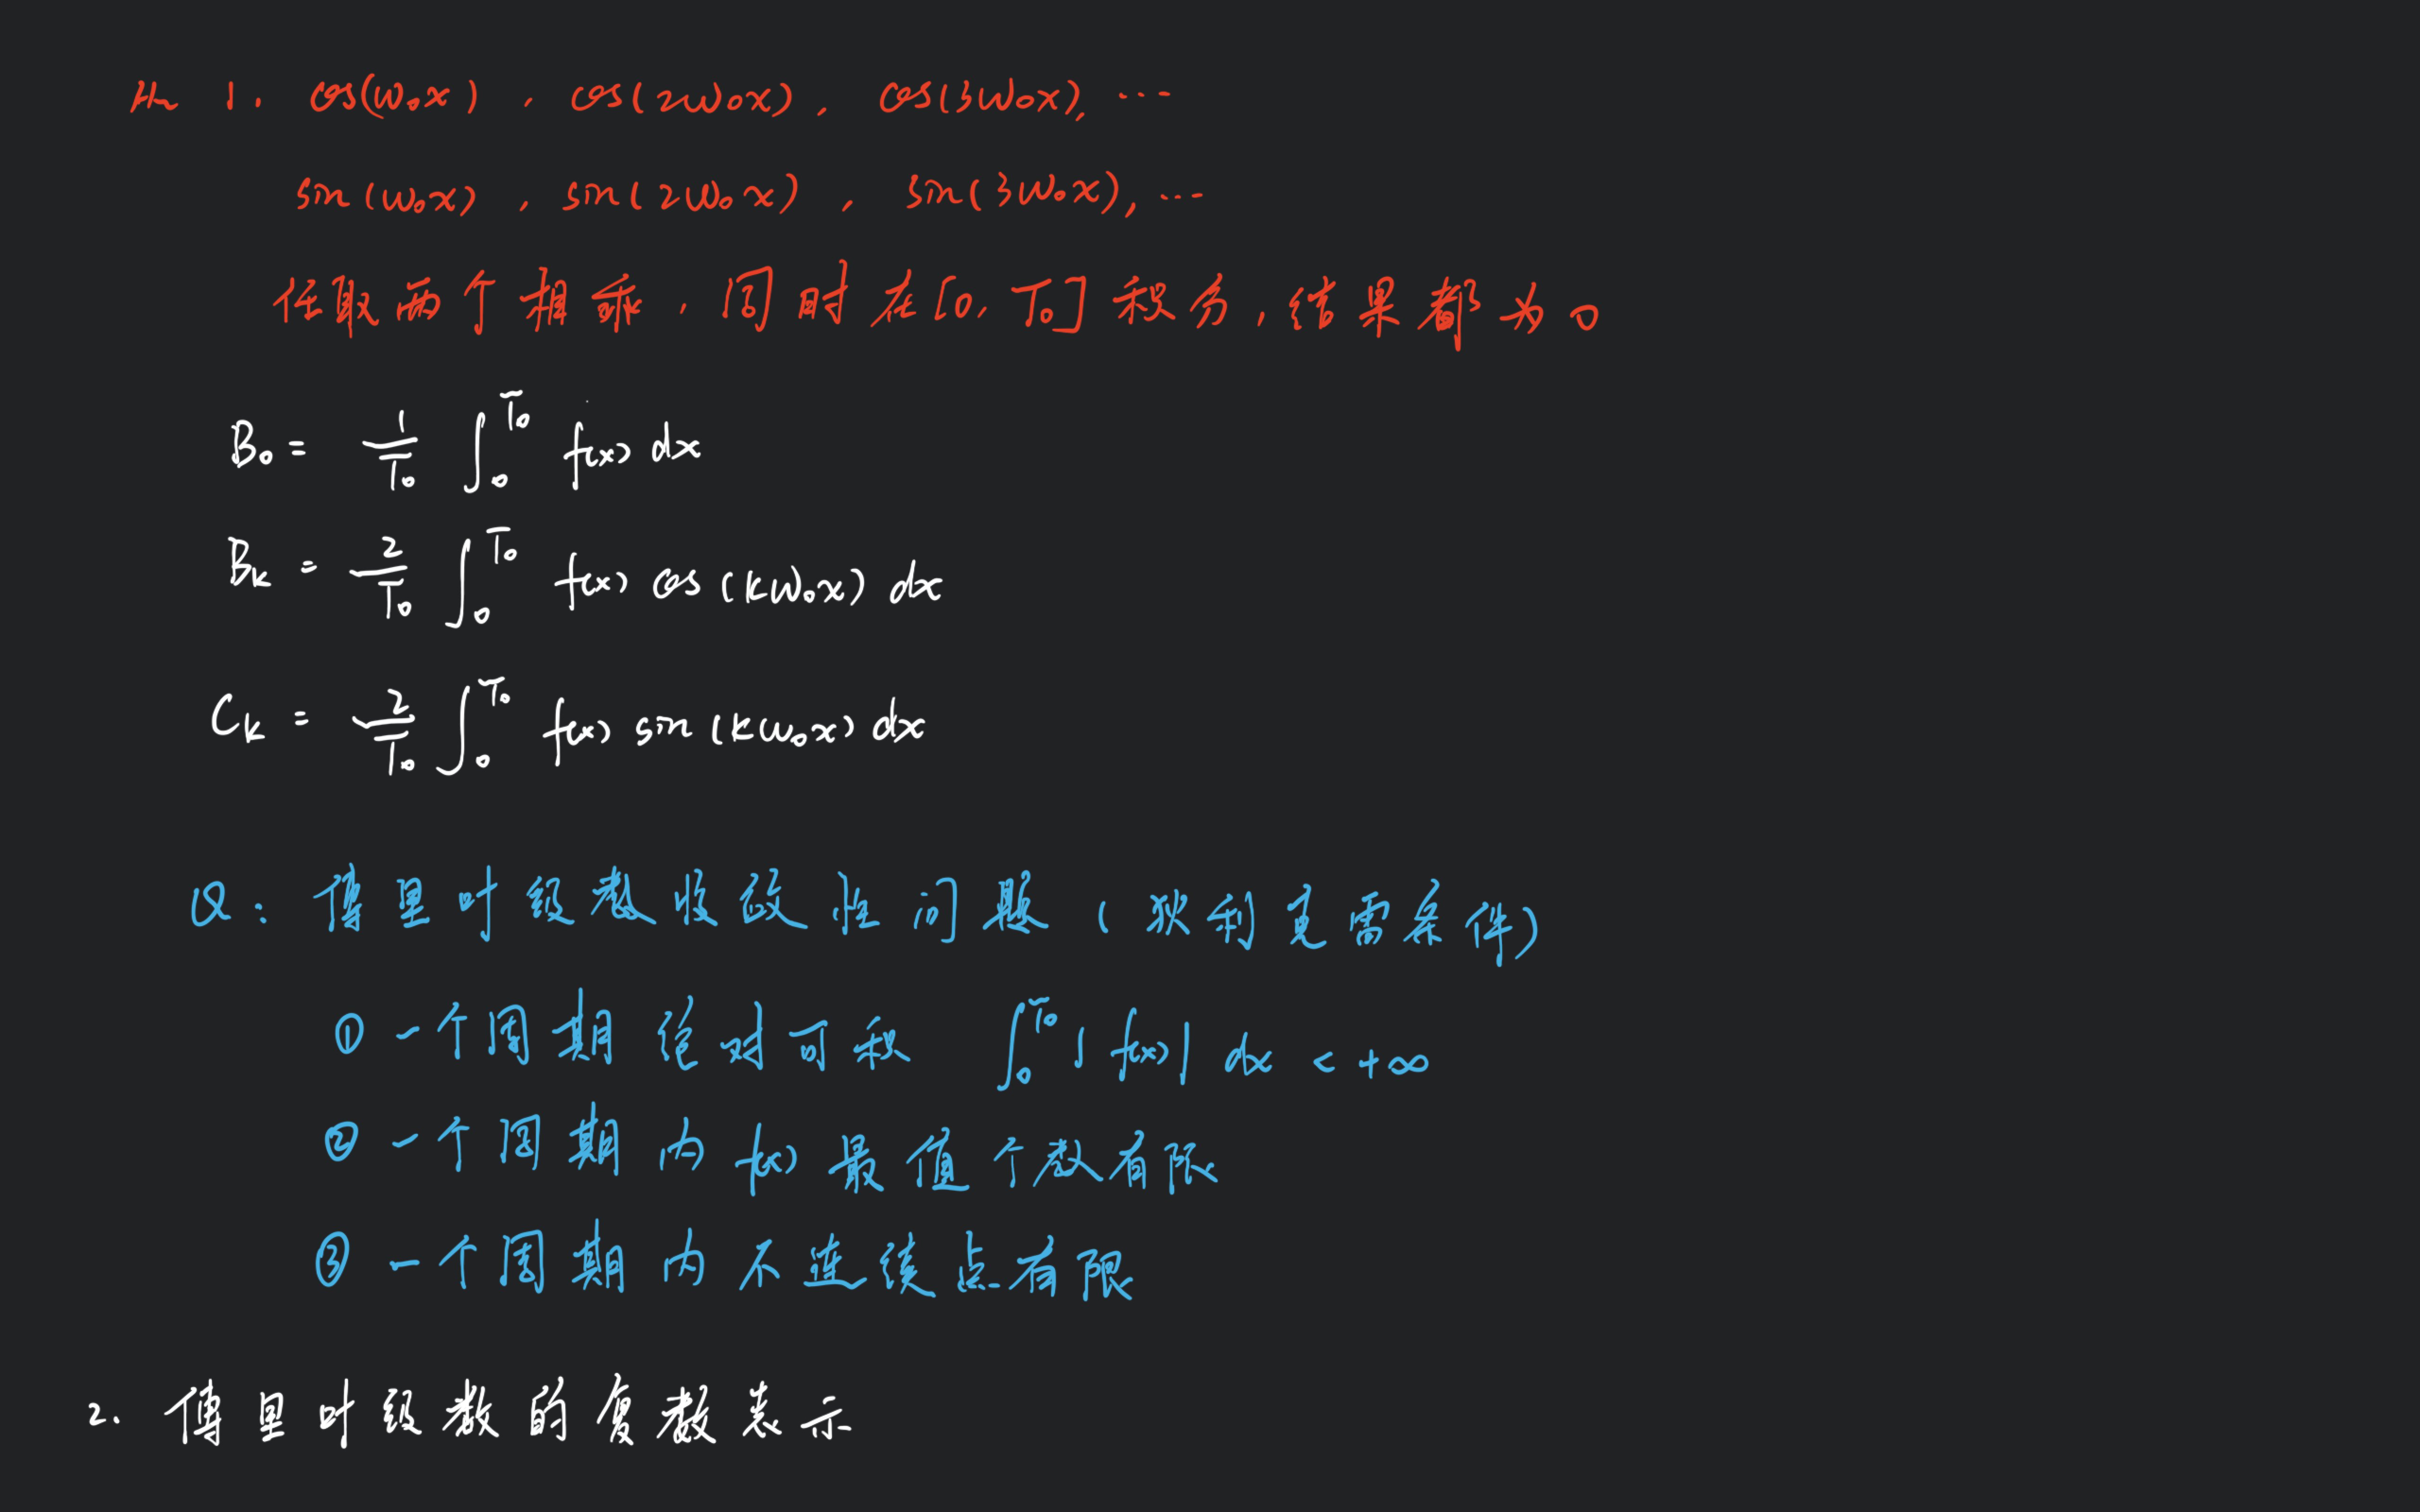 从 1. cos(ω₀x), cos(2ω₀x), cos(3ω₀x), ...
sin(ω₀x), sin(2ω₀x), sin(3ω₀x), ...
任取两个相乘,同时在[0, T₀]积分,结果都为0
B₀ = 1/T₀ ∫₀^T₀ f(x) dx
Bₖ = 2/T₀ ∫₀^T₀ f(x) cos(kω₀x) dx
Cₖ = 2/T₀ ∫₀^T₀ f(x) sin(kω₀x) dx
Q: 傅里叶级数收敛性问题(狄利克雷条件)
① 一个周期绝对可积 ∫₀^T₀ |f(x)| dx < +∞
② 一个周期内f(x)最值个数有限
③ 一个周期内不连续点有限
2. 傅里叶级数的复数表示